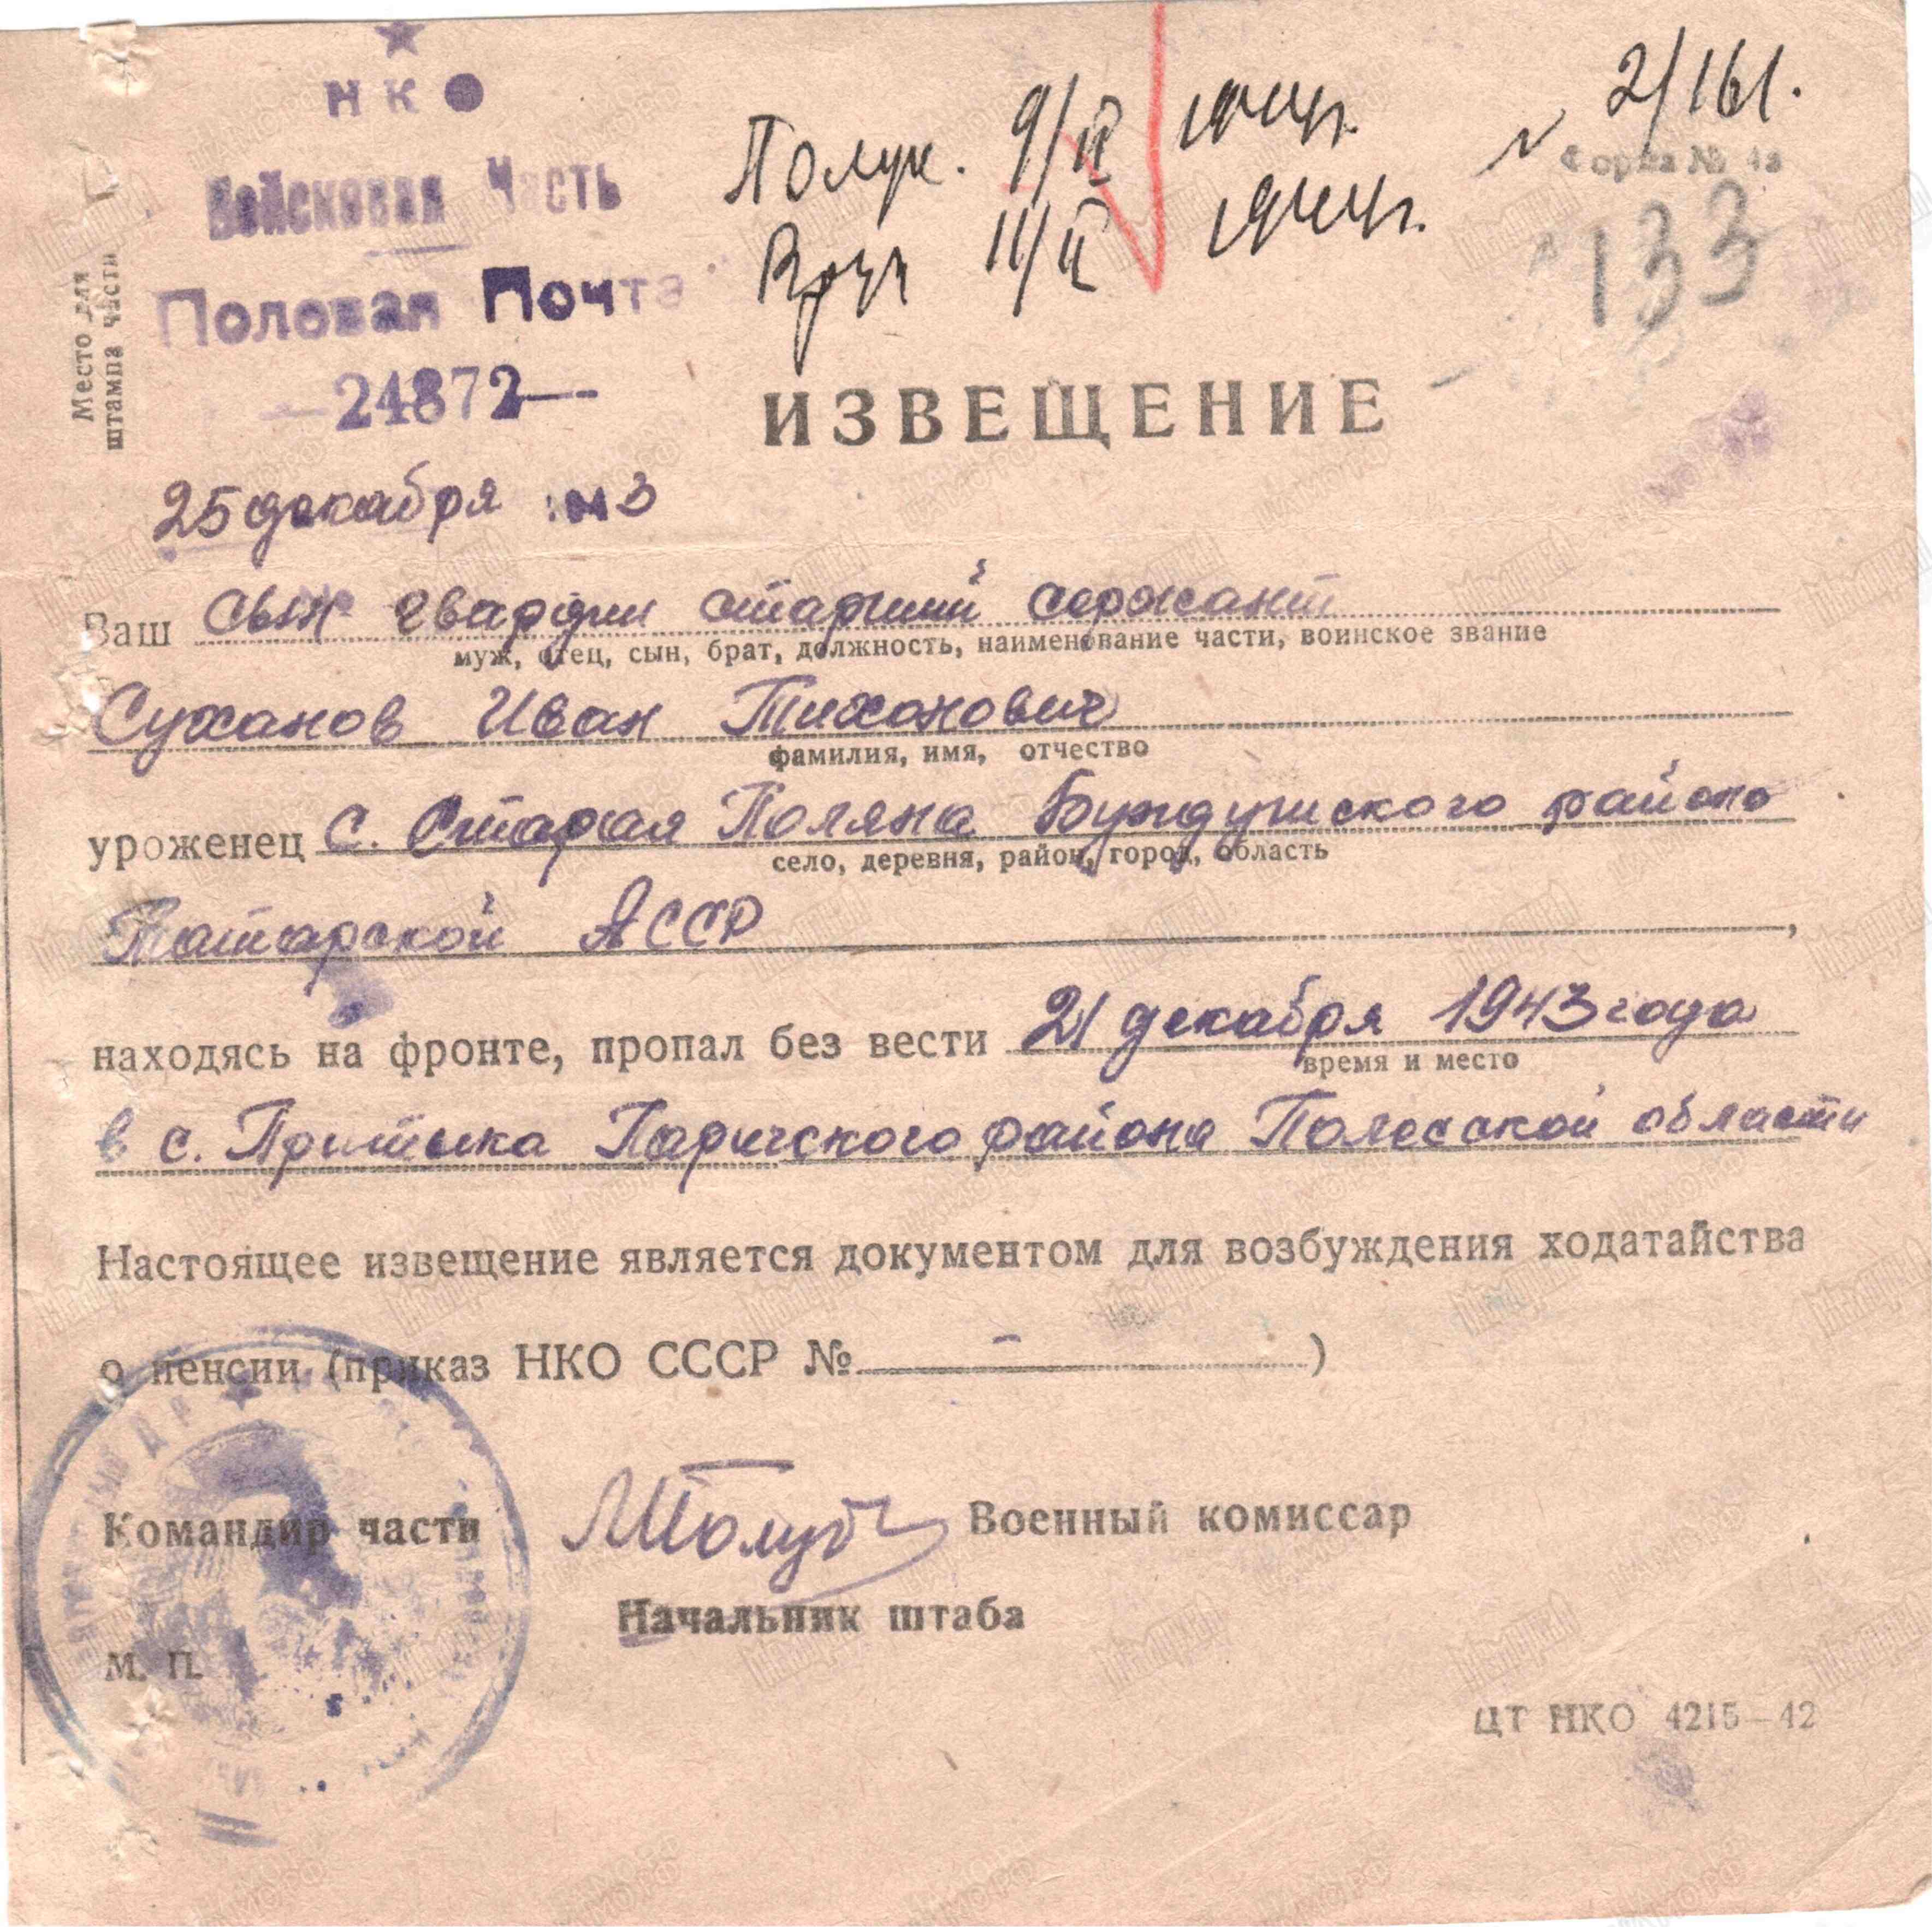 НКО
Войсковая Часть
Полевая Почта
24872
Место для
штампа части
Получ. 9/II 1944г.
Вруч 11/II 1944г.
2/161.
Форма № 4а
133
ИЗВЕЩЕНИЕ
25 декабря 1943
Ваш сын гвардии старший сержант
муж, отец, сын, брат, должность, наименование части, воинское звание
Суханов Иван Тихонович
фамилия, имя, отчество
уроженец с. Старая Поляна района
село, деревня, район, город, область
Татарской АССР,
находясь на фронте, пропал без вести 21 декабря 1943 года
время и место
в с. Притыка Паричского района Полесской области
Настоящее извещение является документом для возбуждения ходатайства
о пенсии (приказ НКО СССР № – )
Командир части Военный комиссар
Начальник штаба
М. П.
ЦТ НКО 4215—42